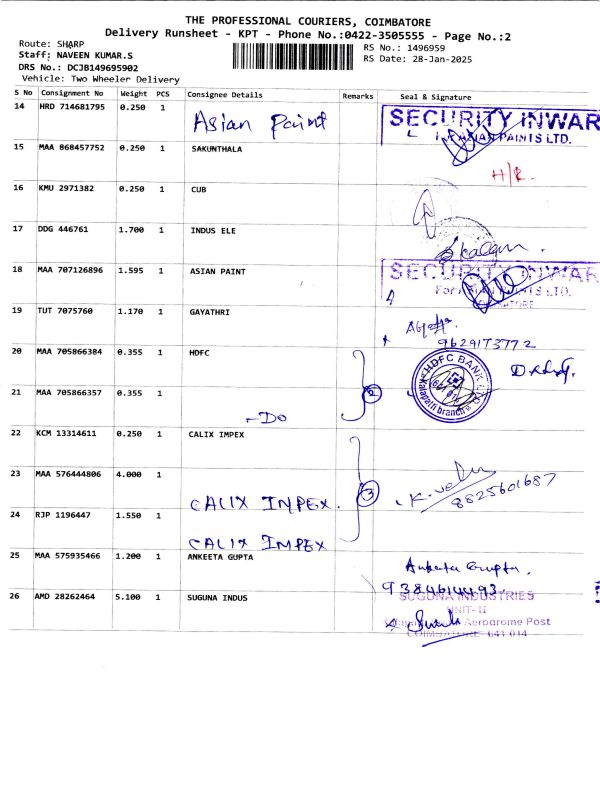 THE PROFESSIONAL COURIERS, COIMBATORE
Delivery Runsheet - KPT - Phone No.:0422-3505555 - Page No.:2
Route: SHARP
Staff: NAVEEN KUMAR.S
DRS No.: DCJB149695902
Vehicle: Two Wheeler Delivery
RS No.: 1496959
RS Date: 28-Jan-2025
S No Consignment No Weight PCS Consignee Details Remarks Seal & Signature
14 HRD 714681795 0.250 1 Asian Paint
SECURITY INWAR
ASIAN PAINTS LTD.
15 MAA 868457752 0.250 1 SAKUNTHALA
H/R.
16 KMU 2971382 0.250 1 CUB
17 DDG 446761 1.700 1 INDUS ELE
18 MAA 707126896 1.595 1 ASIAN PAINT
SECURITY INWAR
For ASIAN PAINTS LTD.
19 TUT 7075760 1.170 1 GAYATHRI
9629173772
20 MAA 705866384 0.355 1 HDFC
HDFC BANK LTD
Kalapatti branch
21 MAA 705866357 0.355 1
- Do
2
22 KCM 13314611 0.250 1 CALIX IMPEX
23 MAA 576444806 4.000 1
CALIX IMPEX.
3
8825601687
24 RJP 1196447 1.550 1
CALIX IMPEX
25 MAA 575935466 1.200 1 ANKEETA GUPTA
Ankeeta Gupta.
9384614493.
26 AMD 28262464 5.100 1 SUGUNA INDUS
SUGUNA INDUSTRIES
UNIT-II
Aerodrome Post
COIMBATORE- 641 014